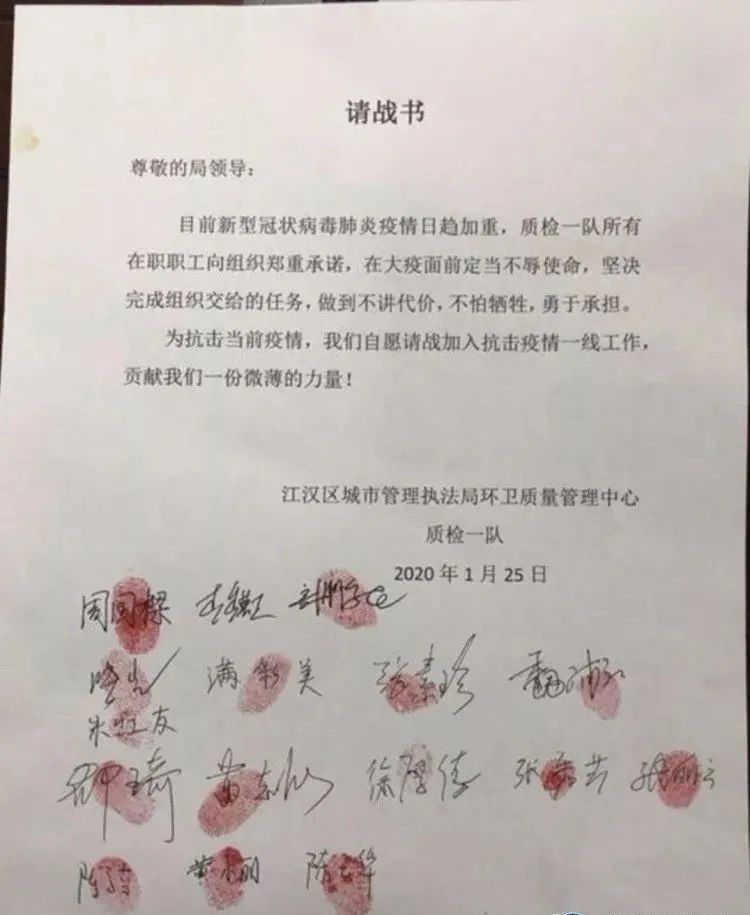 请战书
尊敬的局领导：
目前新型冠状病毒肺炎疫情日趋加重，质检一队所有
在职职工向组织郑重承诺，在大疫面前定当不辱使命，坚决
完成组织交给的任务，做到不讲代价，不怕牺牲，勇于承担。
为抗击当前疫情，我们自愿请战加入抗击疫情一线工作，
贡献我们一份微薄的力量！
江汉区城市管理执法局环卫质量管理中心
质检一队
2020 年 1 月 25 日
周国樑
满彩美
徐厚德